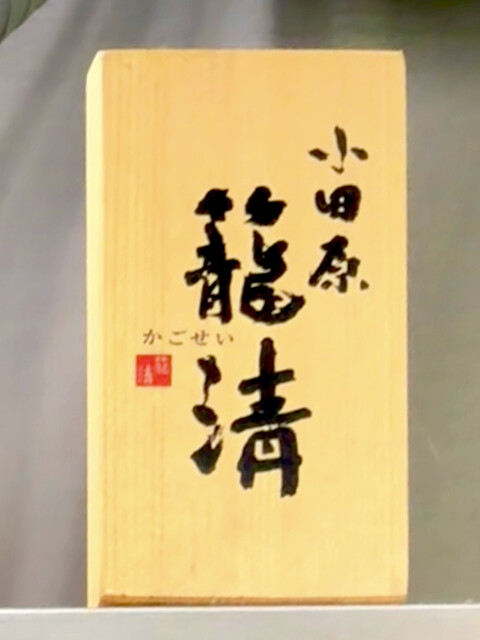 小田原
籠清
かごせい